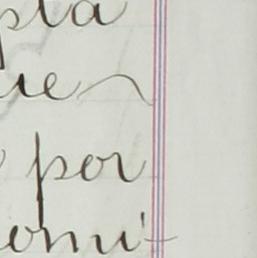 pta
ue
por
omi-